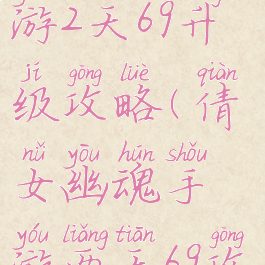 游2天69升
jí gōng lüè qiàn
级攻略(倩
nǚ yōu hún shǒu
女幽魂手
yóu liǎng tiān gōng
游两天69攻